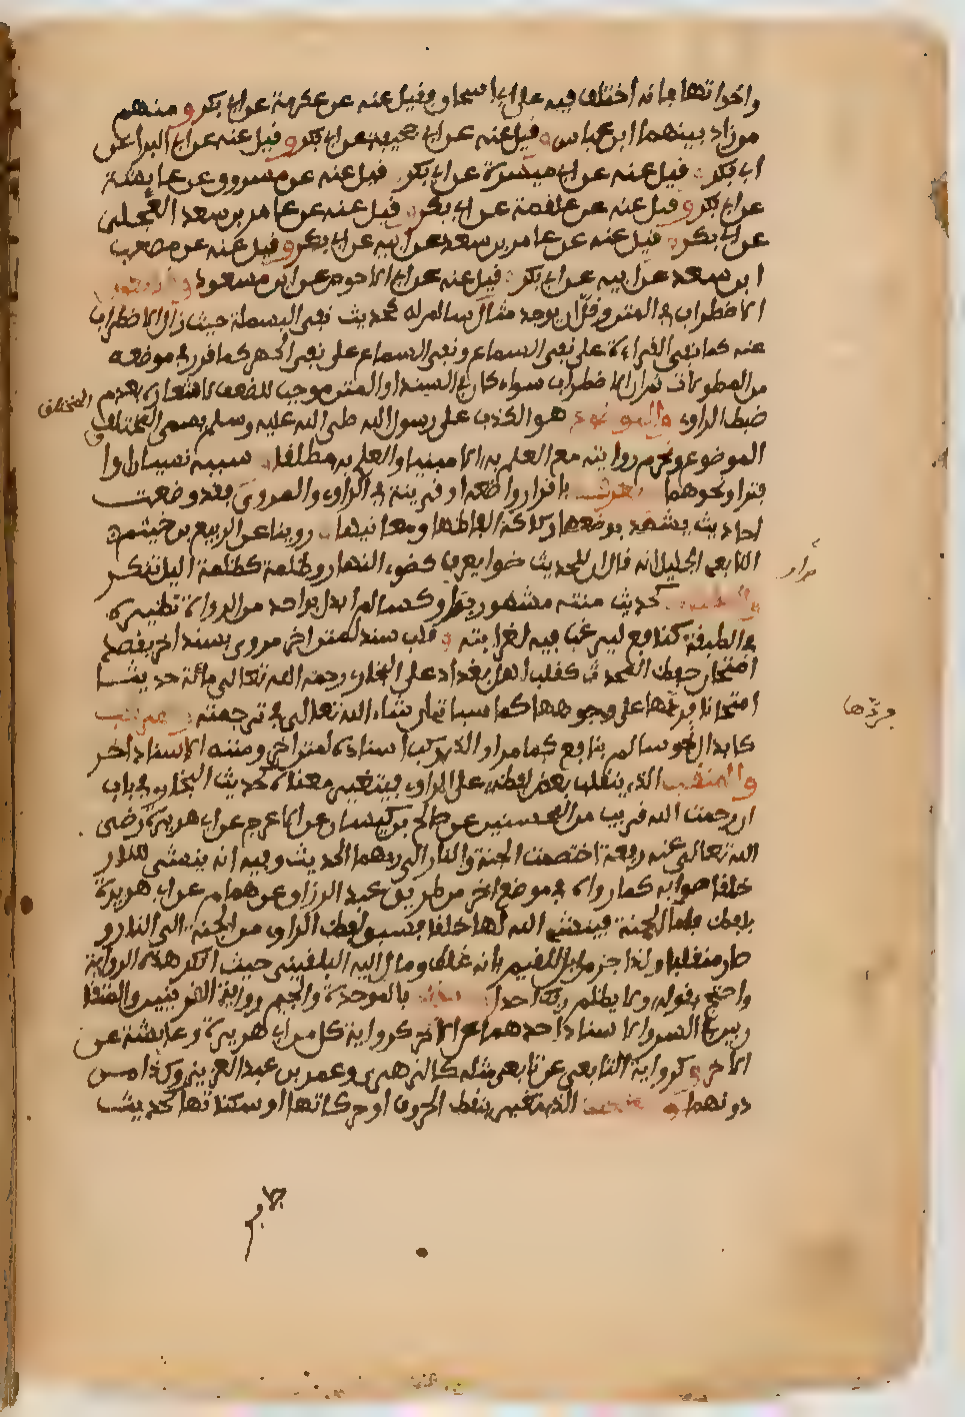 واخواتها فانه اختلف فيه على ابي اسحاق فقيل عنه عن عكرمة عن ابي بكر و منهم
من زاد بينهما ابن عباس و قيل عنه عن ابي جحيفة عن ابي بكر و قيل عنه عن ابي البراء عن
ابي بكر و قيل عنه عن ابي ميسرة عن ابي بكر و قيل عنه عن مسروق عن عايشة
عن ابي بكر و قيل عنه عن علقمة عن ابي بكر و قيل عنه عن عامر بن سعد البجلي
عن ابي بكر و قيل عنه عن عامر بن سعد عن ابيه عن ابي بكر و قيل عنه عن مصعب
ابن سعد عن ابيه عن ابي بكر و قيل عنه عن ابي الاحوص عن ابن مسعود
الاضطراب في المتن وقل ان يوجد مثال سالم له كحديث نفي البسملة حيث زال الاضطراب
عنه كما نفي القراءة على نفي السماع و نفي السماع على نفي الجهر كما قرر في موضعه
من المطولات ثم ان الاضطراب سواء كان في السند او المتن موجب للضعف لاشعاره بعدم
ضبط الراوي والموضوع هو الكذب على رسول الله صلى الله عليه وسلم يسمى المختلق المختلق
الموضوع وتحرم روايته مع العلم به الا مبينا والعمل به مطلقا و سببه نسيان او
افتراء ونحوهما باقرار واضعه او قرينة في الراوي والمروي فقد وضعت
احاديث يشهد بوضعها ركاكة الفاظها ومعانيها روينا عن الربيع بن خيثم
التابعي الجليل انه قال ان للحديث ضوا يعرف كضوء النهار وظلمة كظلمة اليل تنكر
كحديث متنه مشهور براو كسالم ابدل بواحد من الرواة نظيره
في الطبقة كنافع ليرغب فيه لغرابته و قلب سند لمتن اخر مروي بسند اخر بقصد
امتحان حفظ المحدث كقلب اهل بغداد على البخاري رحمه الله تعالى مائة حديث
امتحانا فردها على وجوهها كما سياتي ان شاء الله تعالى في ترجمته
كابدال نحو سالم بنافع كما مر او الذي ركب اسناده لمتن اخر ومتنه لاسناد اخر
والمنقلب الذي ينقلب بعض لفظه على الراوي فيتغير معناه كحديث البخاري في باب
ان رحمت الله قريب من المحسنين عن صالح بن كيسان عن الاعرج عن ابي هريرة رضي
الله تعالى عنه رفعه اختصمت الجنة والنار الى ربهما الحديث وفيه انه ينشئ للنار
خلقا صوابه كما رواه في موضع اخر من طريق عبد الرزاق عن همام عن ابي هريرة
بلفظ فاما الجنة فينشئ الله لها خلقا فسبق لفظ الراوي من الجنة الى النار و
صار منقلبا ولذا جزم ابن القيم بانه غلط ومال اليه البلقيني حيث انكر هذه الرواية
واحتج بقوله ولا يظلم ربك احدا بالموحدة والجيم رواية القرينين المتقا
ربين في السن والاسناد احدهما عن الاخر كرواية كل من ابي هريرة وعايشة عن
الاخر و كرواية التابعي عن تابعي مثله كالزهري وعمر بن عبد العزيز وكذا من
دونهما و الذي تغير بنقط الحروف او حركاتها او سكناتها كحديث
مرار
فردها
جابر